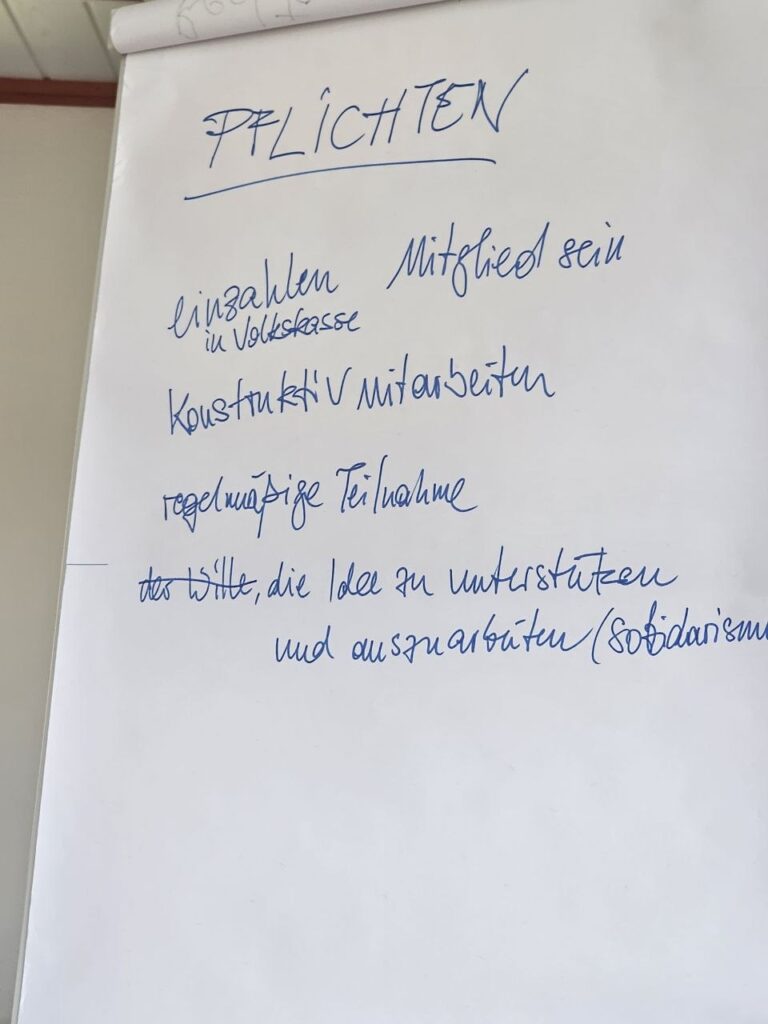 PFLICHTEN
einzahlen Mitglied sein
in Volkskasse
Konstruktiv mitarbeiten
regelmäßige Teilnahme
der Wille, die Idee zu unterstützen
und auszuarbeiten (Solidarism